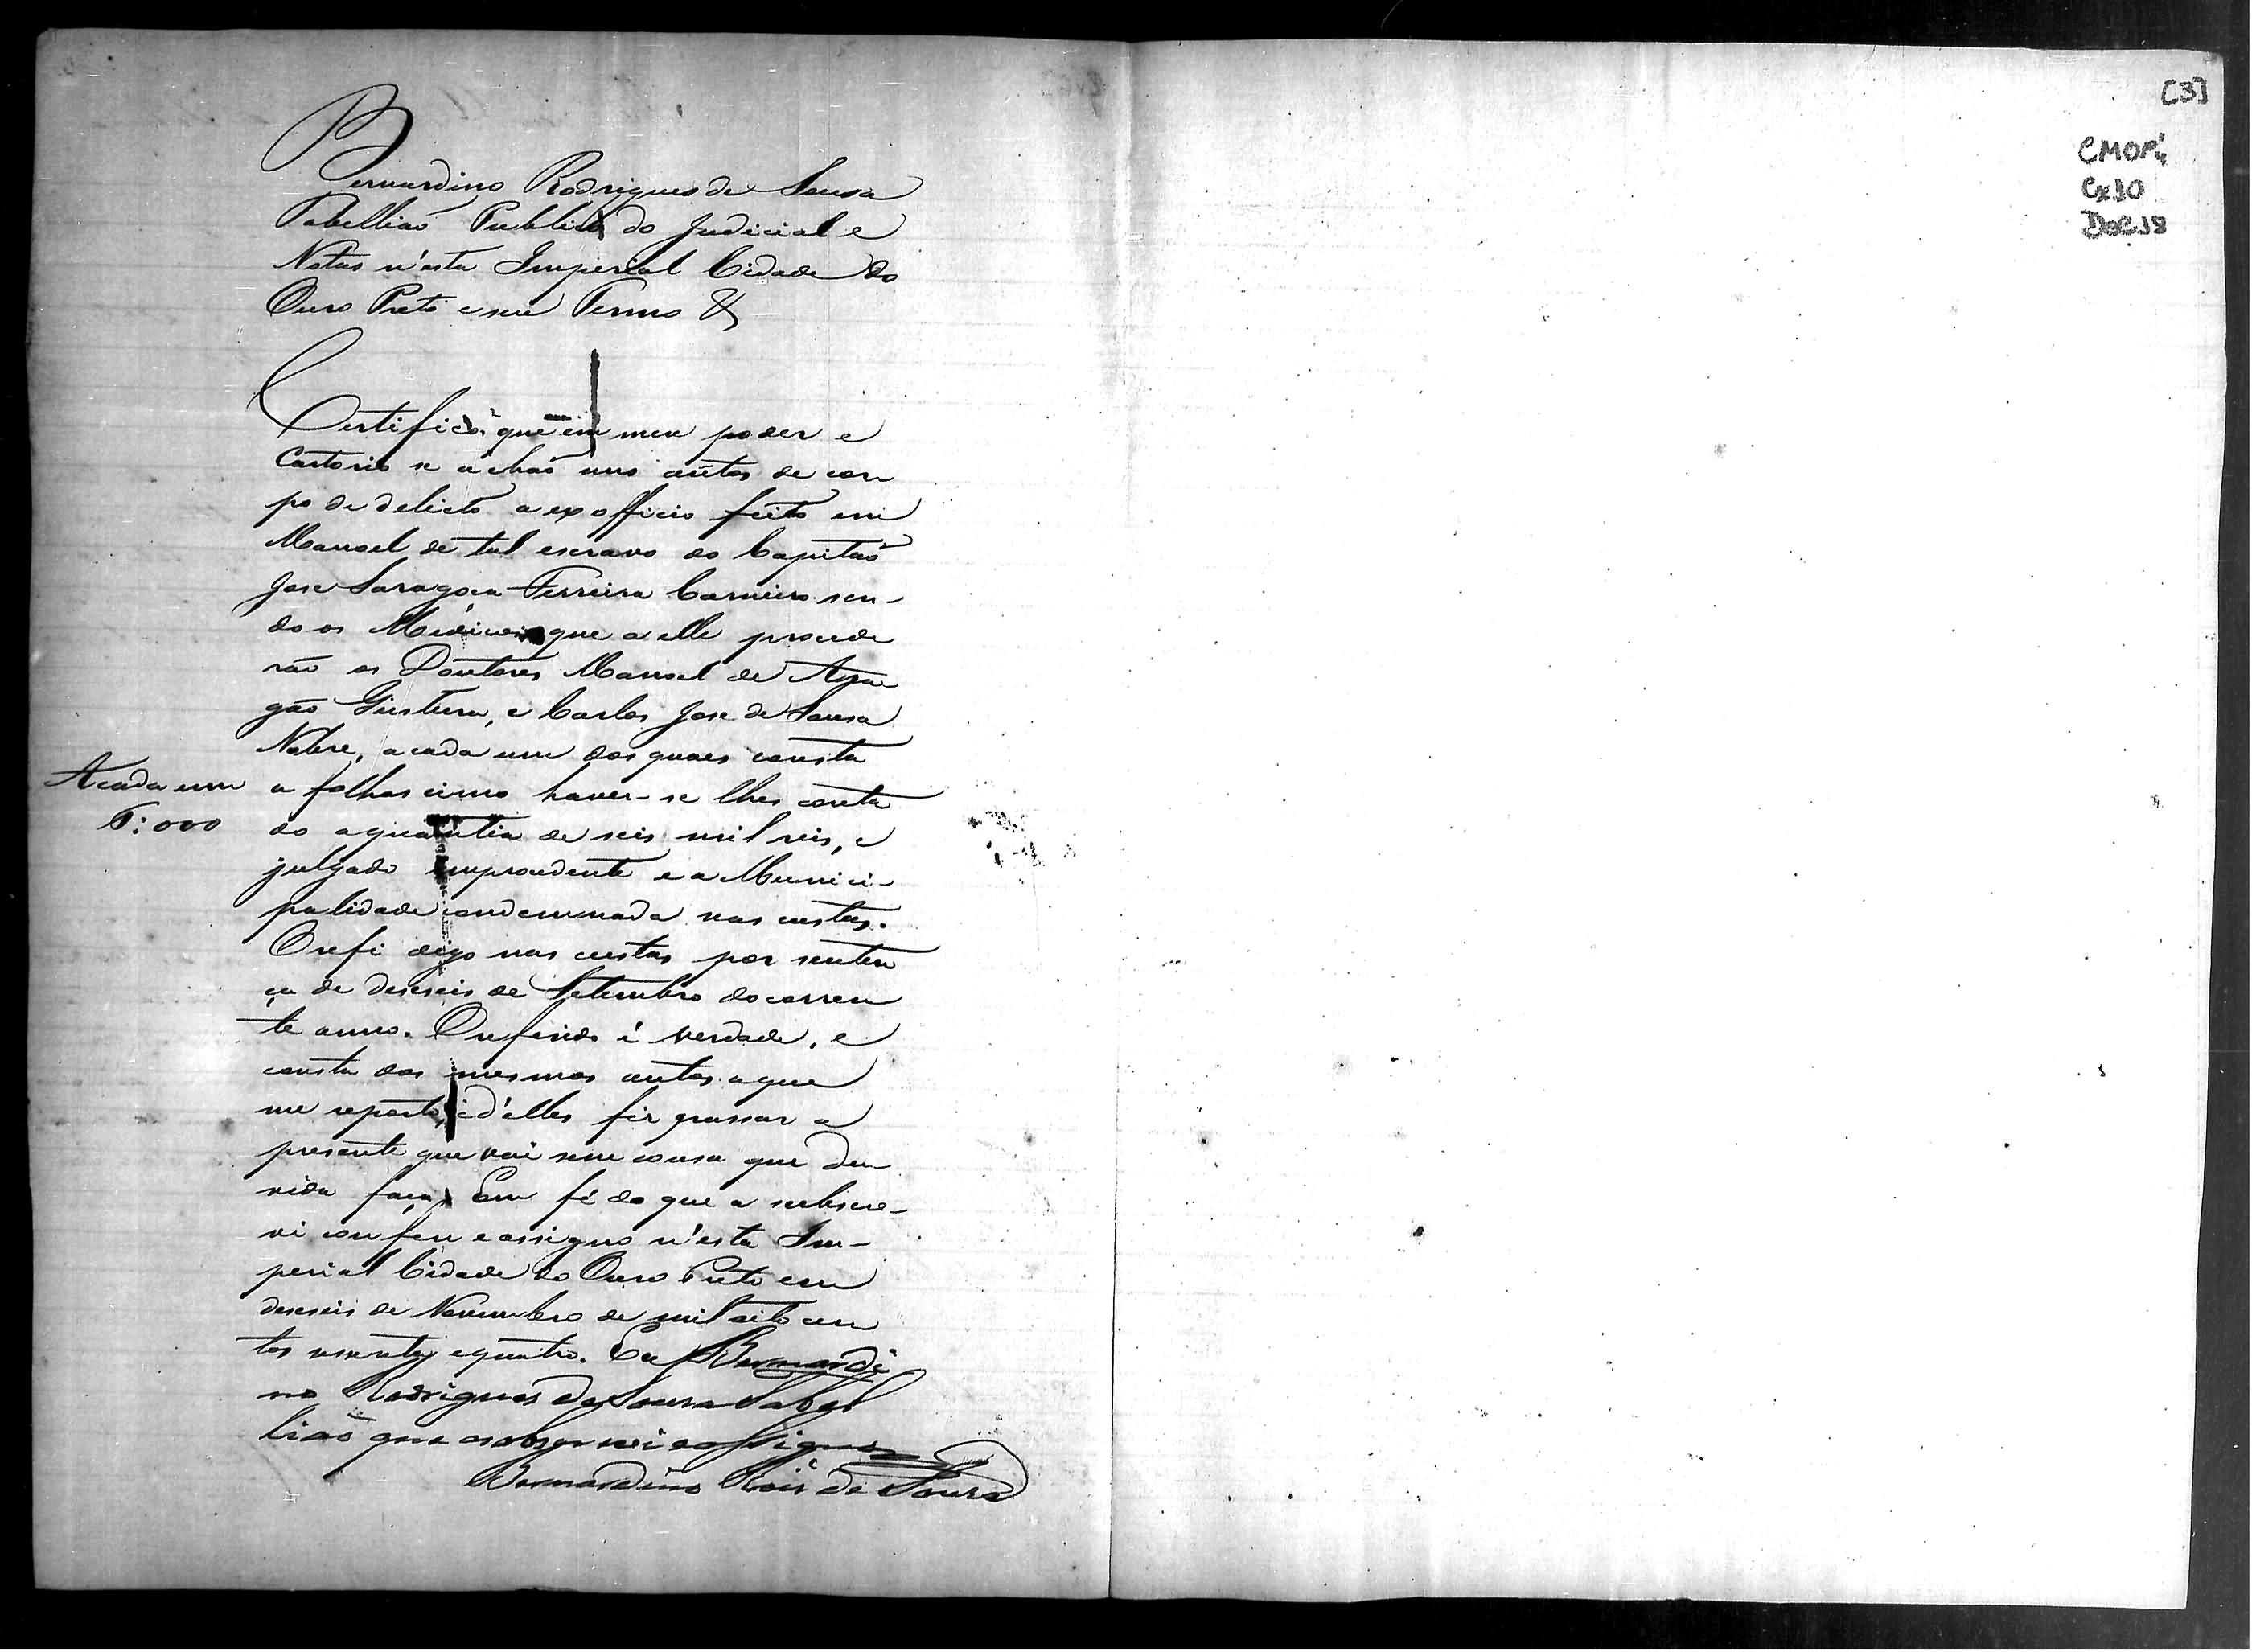 Bernardino Rodrigues de Sousa
Tabellião Publico do Judicial e
Notas n'esta Imperial Cidade do
Ouro Preto e seu Termo &
Certifico que em meu poder e
Cartorio se achão uns autos de cor
po de delicto a ex officio feito em
Manoel de tal escravo do Capitão
Jose Saragoca Ferreira Carneiro sen-
do os Medicos que a elle procede
rão os Doutores Manoel de Ara
gão e Carlos Jose de Sousa
Nobre, a cada um dos quaes consta
A cada um
6:000
a folhas cinco haver-se lhes conta
do a quantia de seis mil reis, e
julgado improcedente e a Munici-
palidade condemnada nas custas.
Orefi digo nas custas por senten
ça de deseseis de Setembro do corren
te anno. O referido é verdade, e
consta dos mesmos autos a que
me reporto, e d'elles fiz passar a
presente que vai sem cousa que du-
vida faça. Em fé do que a subscre-
vi conferi e assigno n'esta Im-
perial Cidade do Ouro Preto em
deseseis de Novembro de mil oito cen
tos e quatro. Eu Bernardi
no Rodrigues de Sousa Tabel
lião que a sobscrevi e assigno
Bernardino Roiz de Sousa
[3]
CMOP
Cx 10
Doc 18